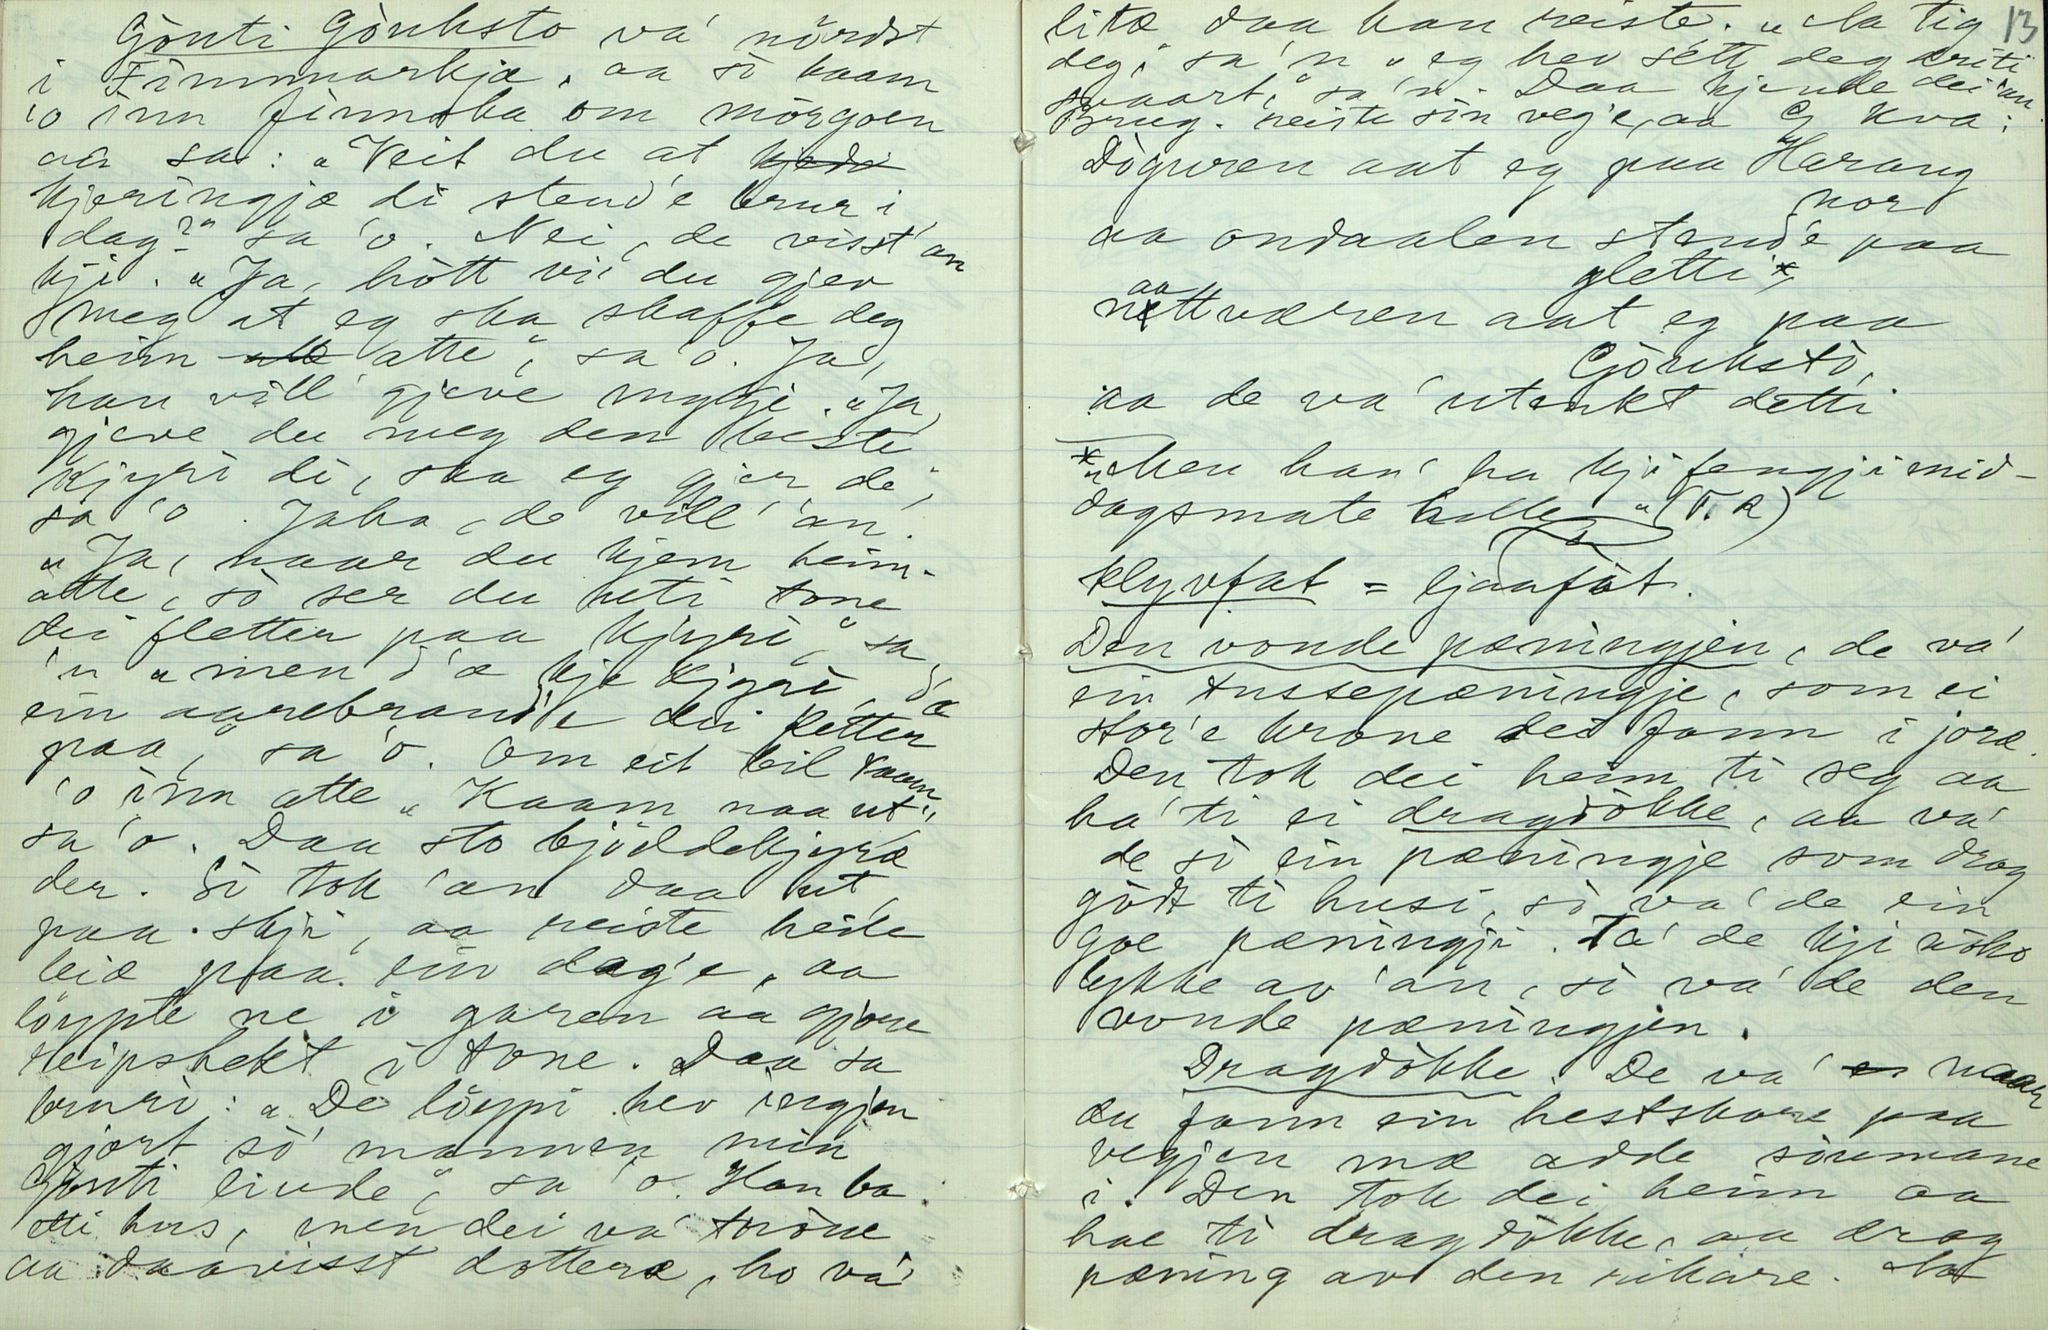 Gonti Gònksto va' nördst
i Finnmarkjæ, aa sò kaam
'o inn finnska om mórgoen
aa sa: "Veit du at kjedi
kjeringjæ di stend'e brur i
dag?" sa 'o. Nei, de visst'an
kji. "Ja, hòtt vi' du gjev
meg at eg ska skaffe deg
heim atte", sa 'o. Ja,
han vill' gjeve mykji. "Ja,
gjeve du meg den beste
kjyri di, ska eg gjer de",
sa 'o. Jaha, de vill' 'an.
"Ja, naar du kjem heim-
atte, sò ser du uti tone
dei fletter paa kjyri," sa
'n "men d'æ kje kjyri, d'æ
ein aarebrand'e dei fletter
paa," sa 'o. Om eit bil kaam
'o inn atte "Kaam naa ut",
sa 'o. Daa sto bjölldekjyræ
der. Sò tok 'an daa ut
paa skji, aa reiste heile
leiæ paa ein dag'e, aa
löypte ne i garen aa gjore
reipshekt i tone. Daa sa
bruri: "De löypi hev ingjen
gjort so' mannen min
Gònti livde", sa 'o. Han ba
sti hus, men dei va' trònne
aa daavisst dotteræ, ho va'
litæ daa han reiste. "Aa tig 13
deg," sa 'n "eg hev sétt deg driti
svaart," sa 'n. Daa kjende dei 'an.
Brug. reiste sin veg'e, aa G kva:
Dòguren aat eg paa Harang
nor
aa ondaalen stend'e paa
gletti*,
aa
nattværen aat eg paa
Gònkstò,
aa de va' utenkt detti
* "Men han' ha kji fengji mid-
dagsmate helle" (T. R)
klyvfat = ljaafòt.
Den vonde pæningjen, de va'
ein tussepæningje, som ei
stor'e krone dei fann i joræ.
Den tok dei heim ti seg aa
ha' ti ei dragdòkke, aa va'
de sò ein pæningje som drog
gòdt ti husi, sò va' de ein
goe pæningji. Va' de kji noko
lykke av 'an, sò va' de den
vonde pæningjen.
Dragdòkke. De va' naar
du fann ein hestskore paa
vegjen mæ adde sòumane
i. Den tok dei heim aa
hae ti dragdòkke, aa drog
pæning av den rikare. Aa